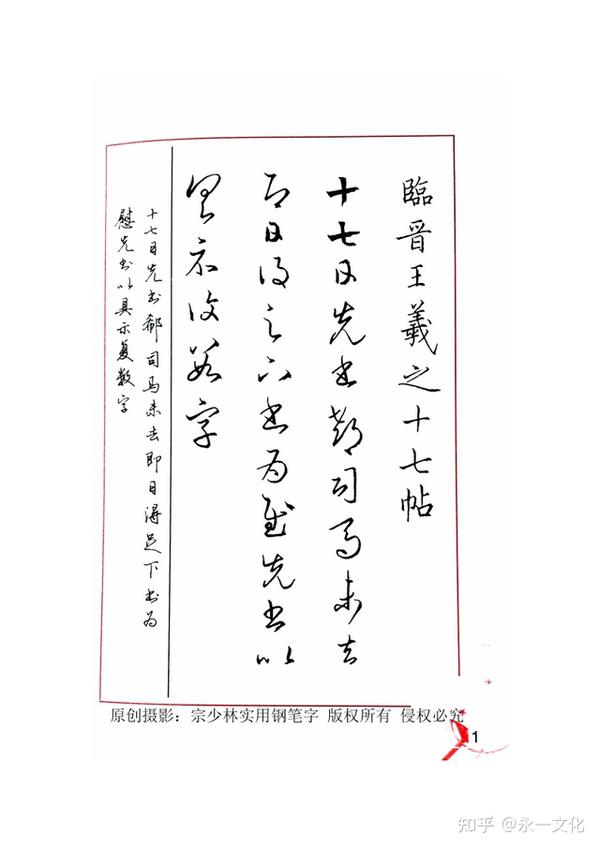 臨晉王羲之十七帖
十七日先書郗司馬未去
即日得足下書為慰先書以
具示復數字
十七日先书郗司马未去即日得足下书为
慰先书以具示复数字
原创摄影：宗少林实用钢笔字 版权所有 侵权必究
1
知乎 @永一文化